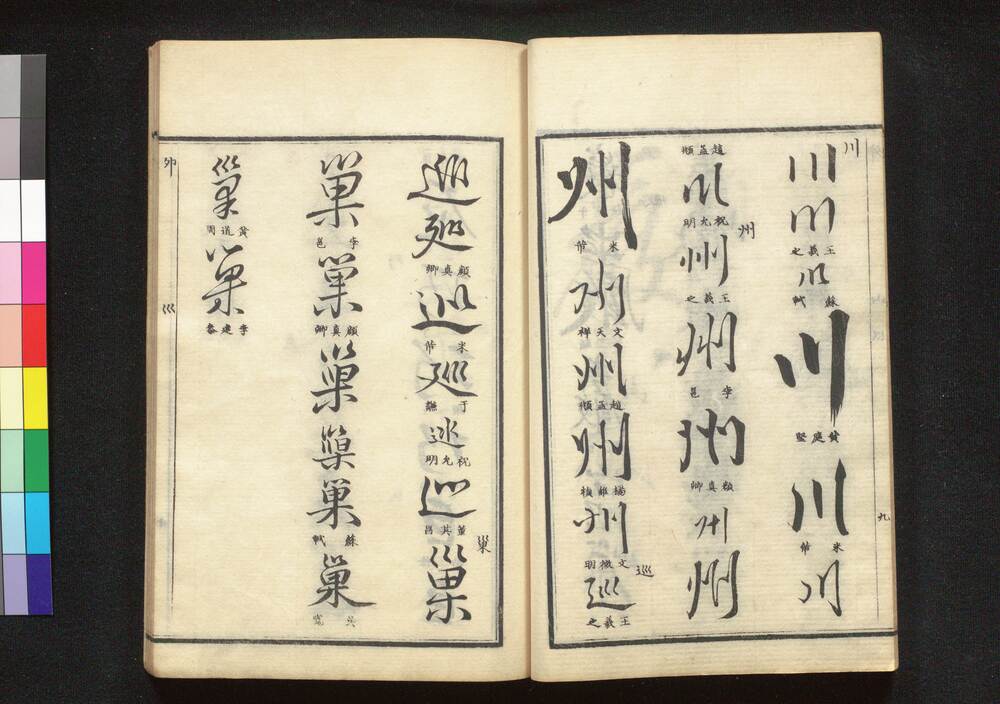 川
川
川
王羲之
川
蘇軾
川
黄庭堅
川
米芾
川
九
趙孟頫
川
祝允明
州
州
王羲之
州
李邕
州
顔真卿
州
州
州
米芾
州
文天祥
州
趙孟頫
州
楊維楨
州
文徴明
巡
巡
王羲之
巡
巡
顔真卿
巡
米芾
巡
于
巡
祝允明
巡
董其昌
巣
巣
巣
李邕
巣
顔真卿
巣
巣
巣
蘇軾
巣
呉寛
巣
黄道周
巣
李建
巛